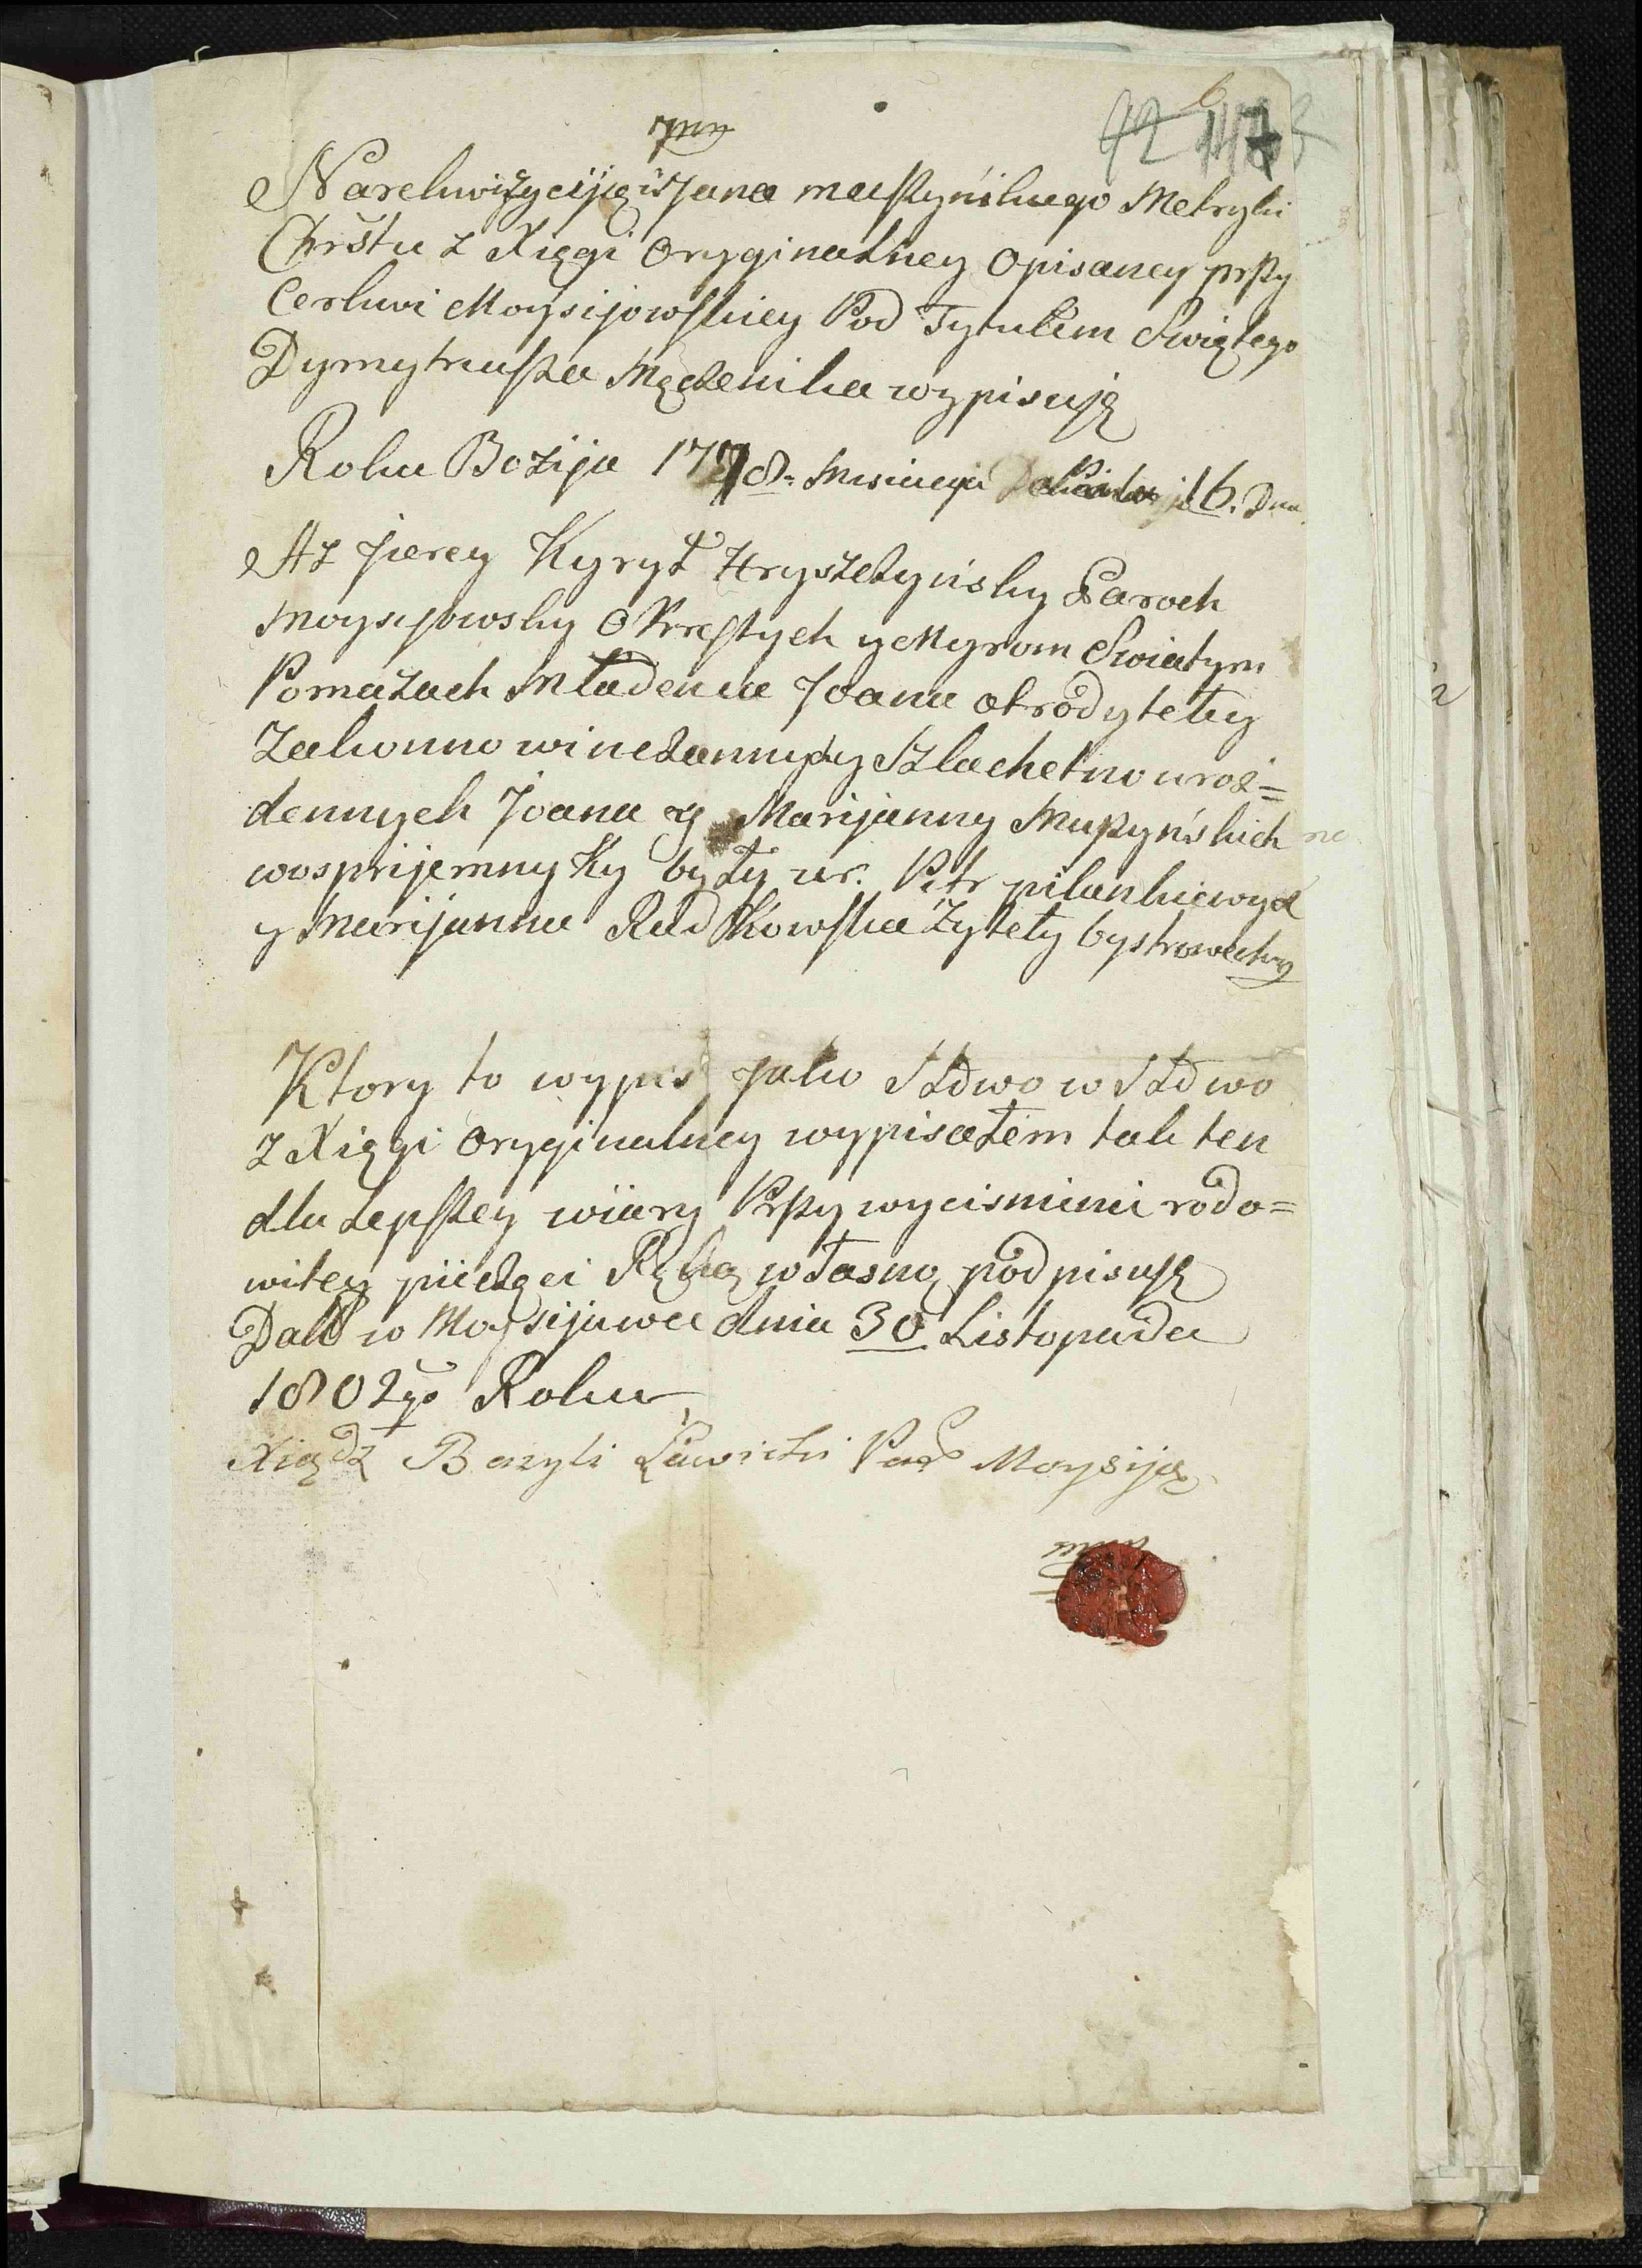 Na rekwizyciją Jana maszyńskiego Metryki
Chrsztu z Xięgi Oryginalney Opisaney przy
Cerkwi Moysijowskiey Pod Tytułem Swiętego
Dymytrusza Męczenika wypisuję
Roku Bożija 1778 Msiacyia 16. Dnia
Az Jierey Kyrył Hryszczyńsky Paroch
Moysijowsky Okrestych y Myrom Swiatym
Pomazach Mładenca Joana ot rodyteły
Zakonno winczannych Szlachetno urož=
dennych Joana y Marijanny Maszyńskich
wosprijemnyky były ur. Petr pilankiewycz
y Marijanna Radkowska żyteły bystrowecky
Ktory to wypis Jako Słowo w Słowo
z Xięgi Oryginalney wypisałem tak ten
dla Lepszey wiary Przy wycisnieni rodo=
witey pieczęci Ręką własną podpisuję
Datt w Moysijuwce dnia 30 Listopada
1802go Roku
Xiądz Bazyli Ławicki Par Moysij